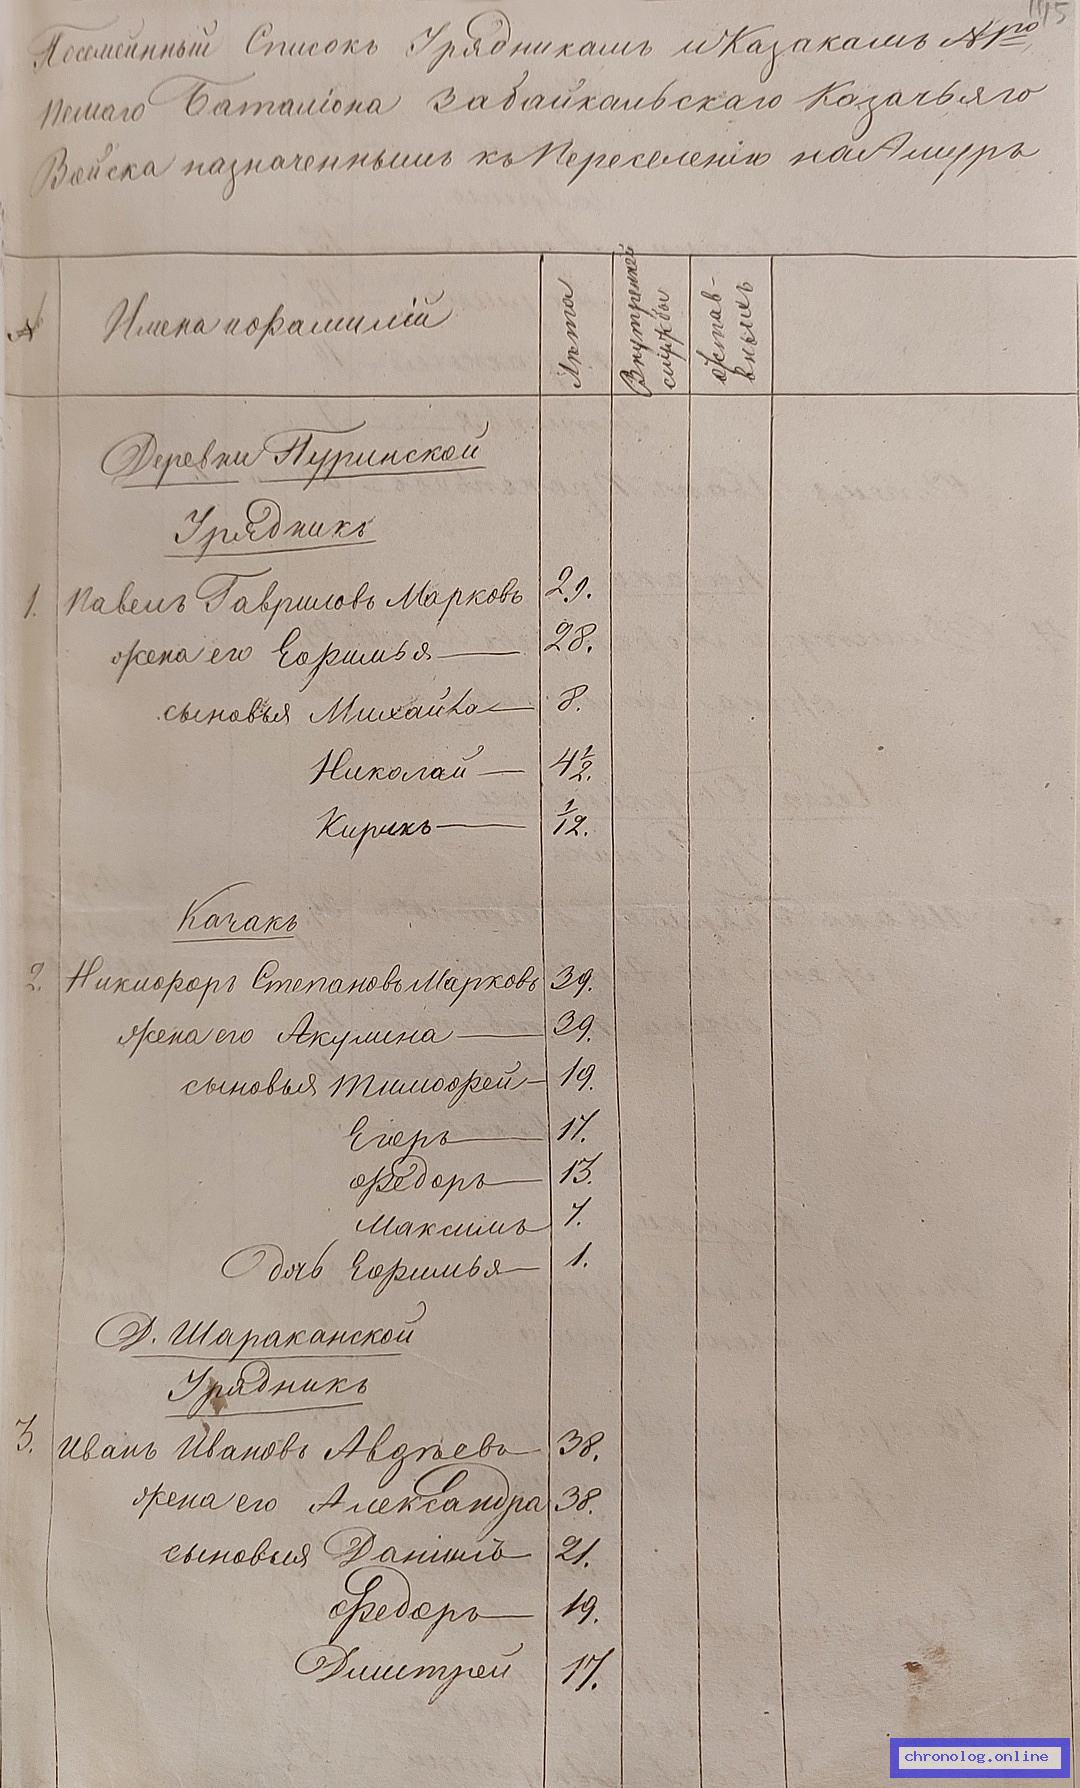 115
Посемейный Списокъ Урядникамъ и Казакамъ №1го
пешаго Баталіона Забайкальскаго Казачьяго
Войска назначеннымъ къ Переселенію на Амуръ
№
Имена и фамиліи
Лѣта
Внутренней службы
отставныхъ
Деревни Пуринской
Урядникъ
1. Павелъ Гавриловъ Марковъ 29.
жена его Ефимья 28.
сыновья Михайло 8.
Николай 4 1/2.
Кирикъ 1/12.
Казакъ
2. Никифоръ Степановъ Марковъ 39.
жена его Акулина 39.
сыновья Тимофей 19.
Егоръ 17.
Федоръ 13.
Максимъ 7.
Дочь Ефимья 1.
Д. Шараканской
Урядникъ
3. Иванъ Ивановъ Авдѣевъ 38.
жена его Александра 38.
сыновья Данилъ 21.
Федоръ 19.
Дмитрей 17.
chronolog.online